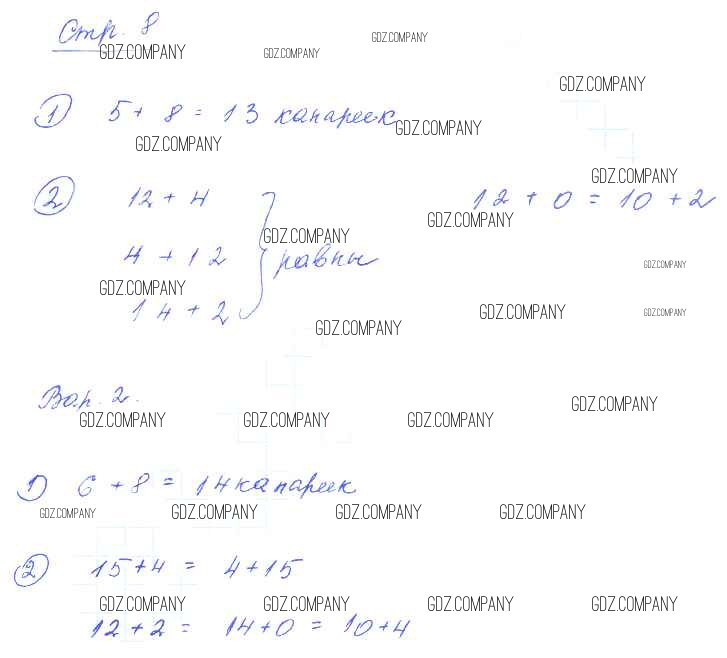 Стр. 8
GDZ.COMPANY GDZ.COMPANY GDZ.COMPANY
GDZ.COMPANY
1) 5 + 8 = 13 канареек
GDZ.COMPANY GDZ.COMPANY
GDZ.COMPANY
2) 12 + 4 12 + 0 = 10 + 2
GDZ.COMPANY GDZ.COMPANY
4 + 12 равны
GDZ.COMPANY GDZ.COMPANY
14 + 2
GDZ.COMPANY GDZ.COMPANY GDZ.COMPANY
Вар. 2.
GDZ.COMPANY GDZ.COMPANY GDZ.COMPANY GDZ.COMPANY
1) 6 + 8 = 14 канареек
GDZ.COMPANY GDZ.COMPANY GDZ.COMPANY GDZ.COMPANY
2) 15 + 4 = 4 + 15
GDZ.COMPANY GDZ.COMPANY GDZ.COMPANY GDZ.COMPANY
12 + 2 = 14 + 0 = 10 + 4